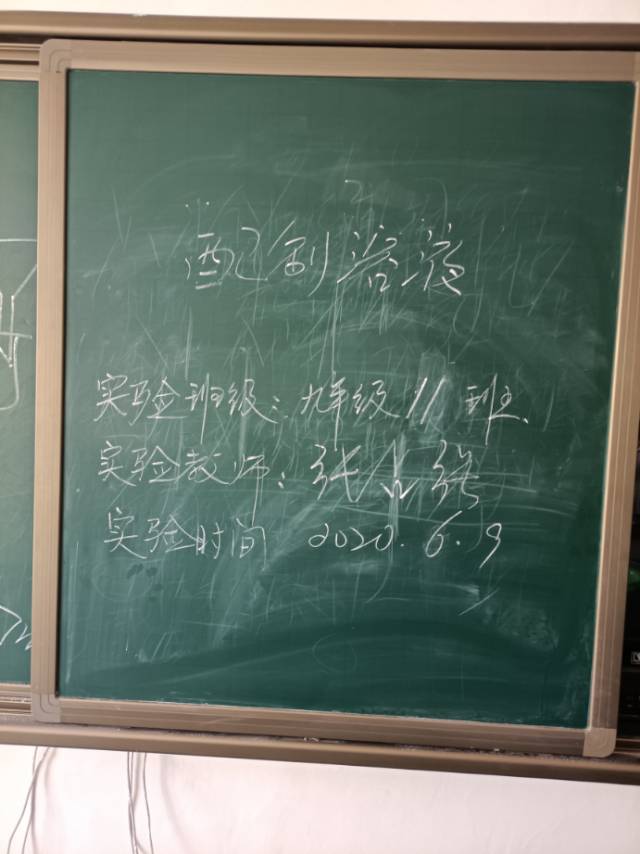 配制溶液
实验班级：九年级11班
实验教师：张
实验时间 2020.6.9